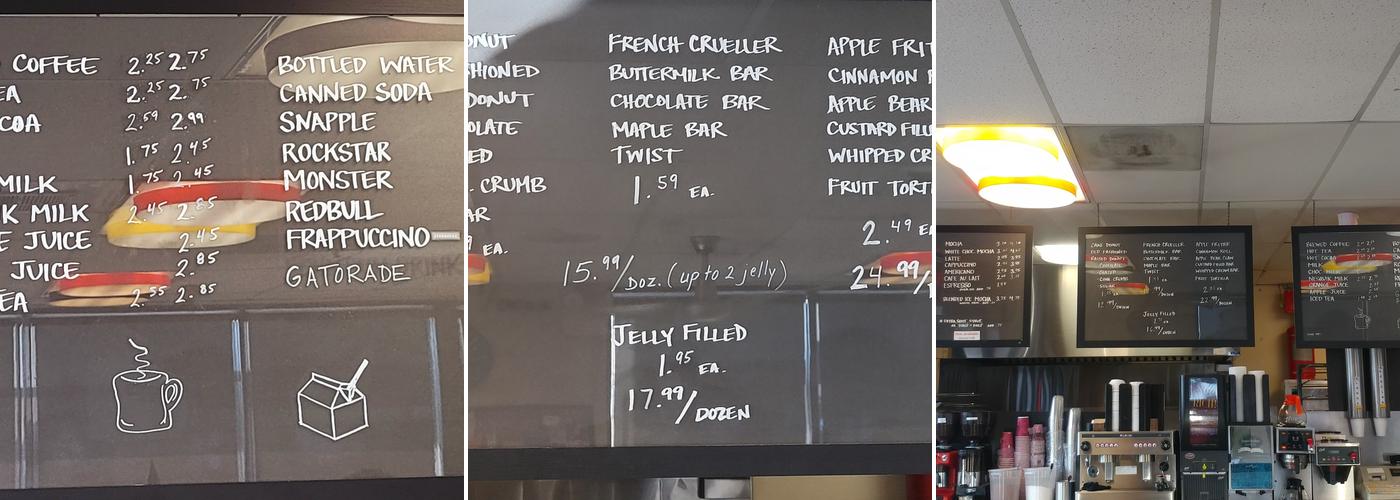 COFFEE 2.25 2.75
EA 2.25 2.75
COA 2.59 2.99
1.75 2.45
MILK 1.75 2.45
K MILK 2.45 2.85
E JUICE 2.45
JUICE 2.85
EA 2.55 2.85
BOTTLED WATER
CANNED SODA
SNAPPLE
ROCKSTAR
MONSTER
REDBULL
FRAPPUCCINO
GATORADE
ONUT
SHIONED
DONUT
OLATE
ED
CRUMB
AR
9 EA.
FRENCH CRUELLER
BUTTERMILK BAR
CHOCOLATE BAR
MAPLE BAR
TWIST
1.59 EA.
15.99/DOZ. (up to 2 jelly)
JELLY FILLED
1.95 EA.
17.99/DOZEN
APPLE FRIT
CINNAMON
APPLE BEAR
CUSTARD FILL
WHIPPED CR
FRUIT TORT
2.49 EA
24.99/
MOCHA
WHITE CHOC. MOCHA
LATTE
CAPPUCCINO
AMERICANO
CAFE AU LAIT
ESPRESSO
BLENDED ICE MOCHA
CAKE DONUT
OLD FASHIONED
RAISED DONUT
CHOCOLATE
GLAZED
CAKE CRUMB
SUGAR
FRENCH CRUELLER
BUTTERMILK BAR
CHOCOLATE BAR
MAPLE BAR
TWIST
JELLY FILLED
APPLE FRITTER
CINNAMON ROLL
APPLE BEAR CLAW
CUSTARD FILLED BAR
WHIPPED CREAM BAR
FRUIT TORTILLA
BREWED COFFEE
HOT TEA
HOT COCOA
MILK
CHOC MILK
NESQUIK MILK
ORANGE JUICE
APPLE JUICE
ICED TEA